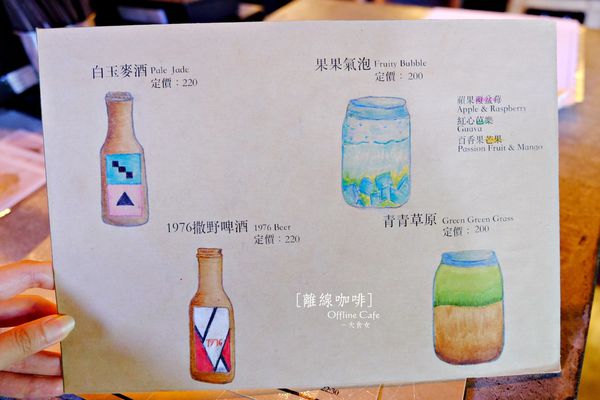 白玉麥酒 Pale Jade
定價：220
果果氣泡 Fruity Bubble
定價：200
蘋果樹盆莓
Apple & Raspberry
紅心芭樂
Guava
百香果芒果
Passion Fruit & Mango
1976撒野啤酒 1976 Beer
定價：220
1976
青青草原 Green Green Grass
定價：200
[離線咖啡]
Offline Cafe
－大食女